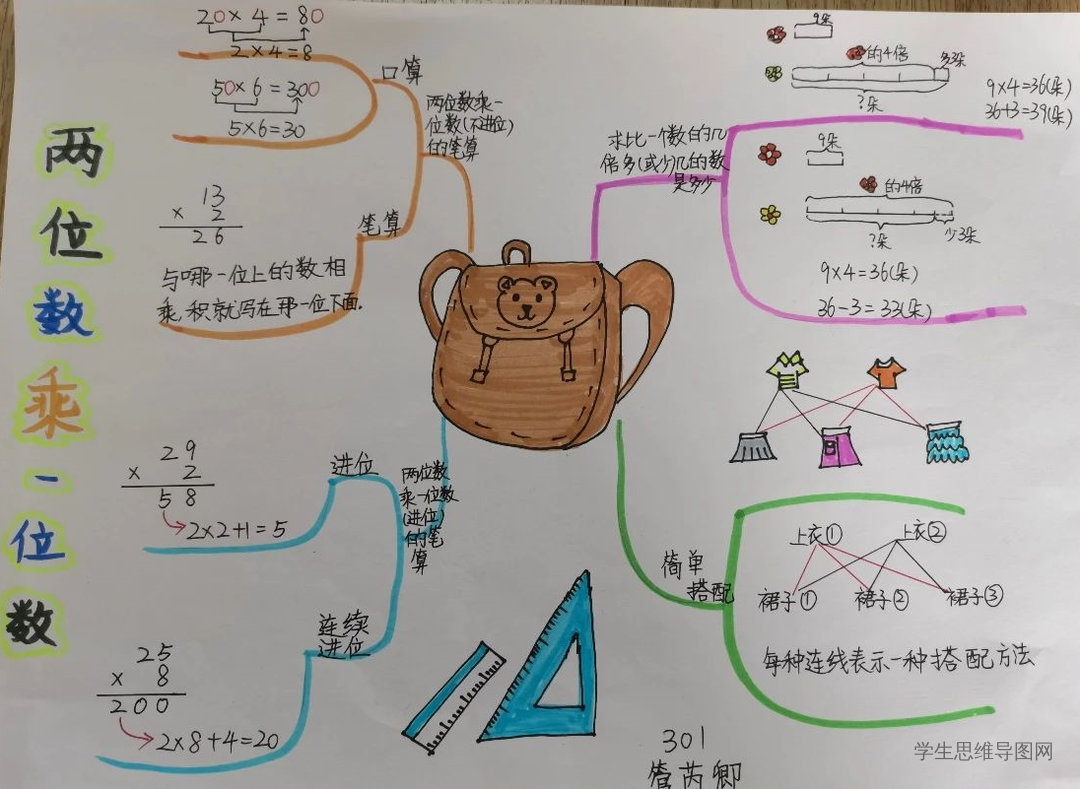 两位数乘一位数
20×4=80
2×4=8
50×6=300
5×6=30
口算
两位数乘一
位数(不进位)
的笔算
13
× 2
26
笔算
与哪一位上的数相
乘,积就写在那一位下面.
29
× 2
58
2×2+1=5
进位
两位数
乘一位数
(进位)
的笔
算
连续
进位
25
× 8
200
2×8+4=20
求比一个数的几
倍多(或少)几的数
是多少
9朵
的4倍
多3朵
?朵
9×4=36(朵)
36+3=39(朵)
9朵
的4倍
?朵
少3朵
9×4=36(朵)
36-3=33(朵)
简单
搭配
上衣① 上衣②
裙子① 裙子② 裙子③
每种连线表示一种搭配方法
301
管芮卿
学生思维导图网